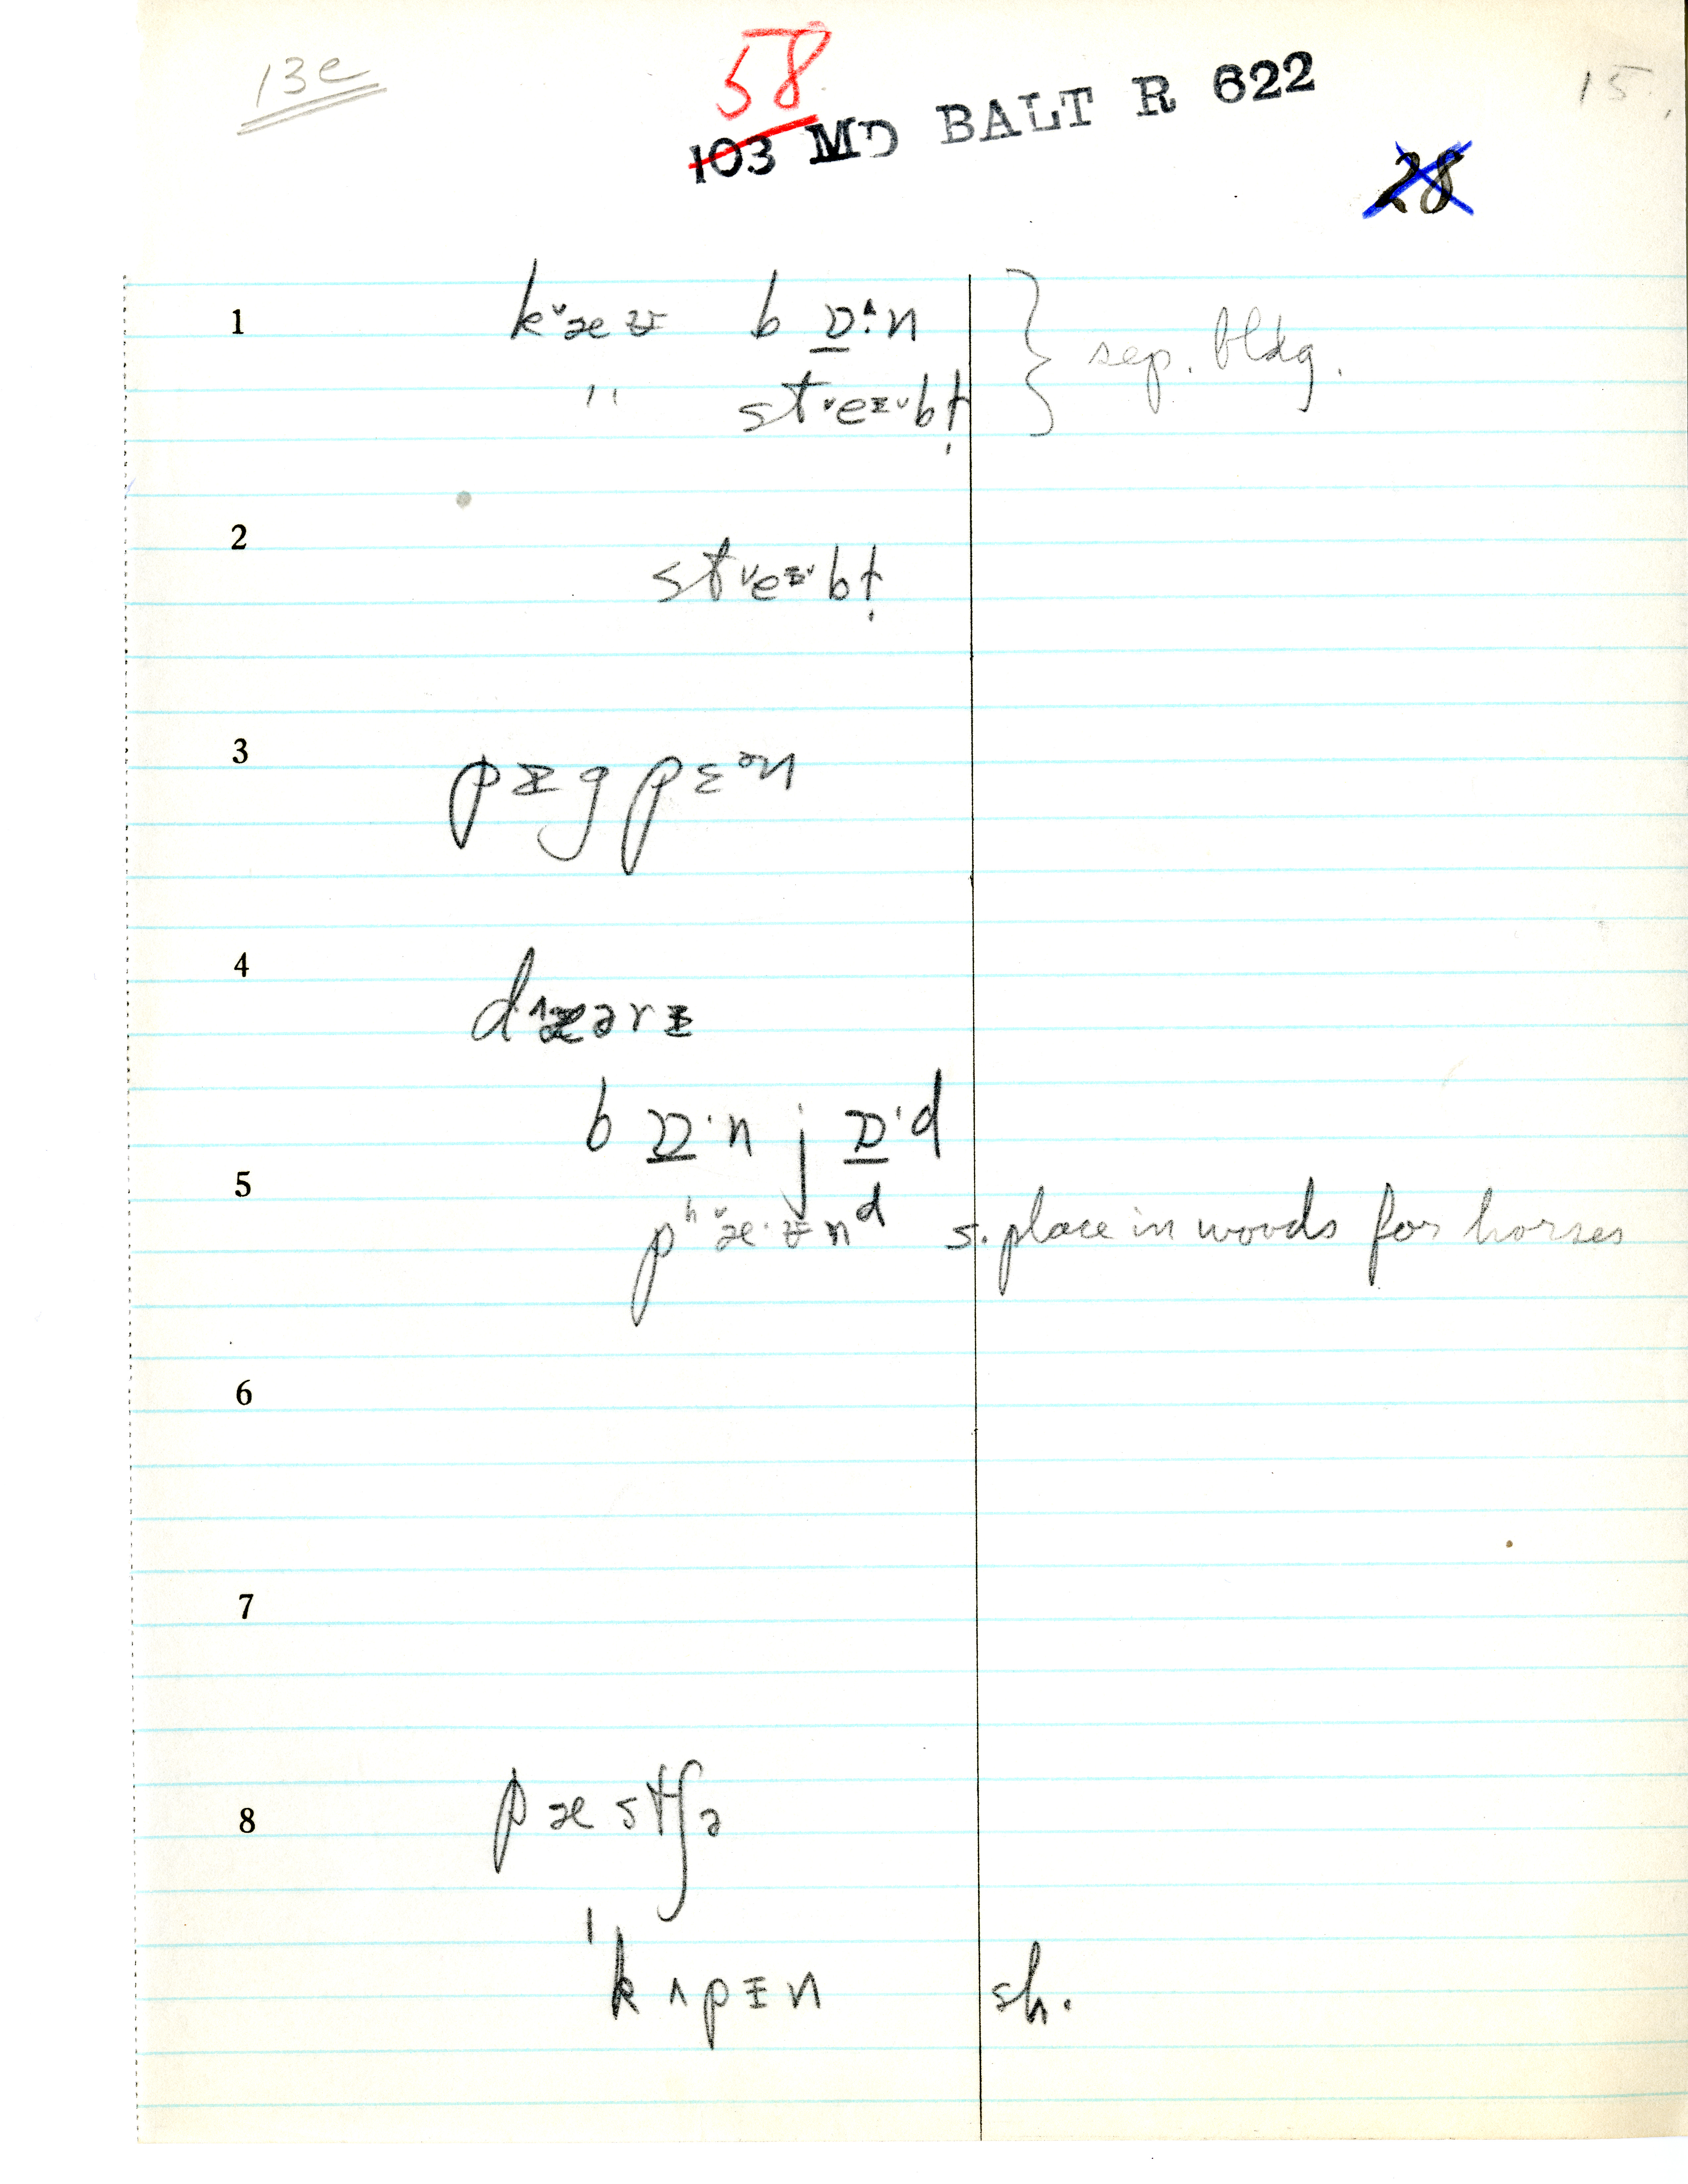 13e
58
103 MD BALT R 622
15.
28
1 k˅æʊ b ɒ^:n } sep. bldg.
" st˅eɪ˅bɫ̩
2 st˅eɪ˅bɫ̩
3 pɪgpɛən
4 d˄æərɪ
b ɒ·n j ɒ·d
5 pʰ˅æ·ʊnᵈ s. place in woods for horses
6
7
8 pæstʃə
ˈkʌpɪn sh.